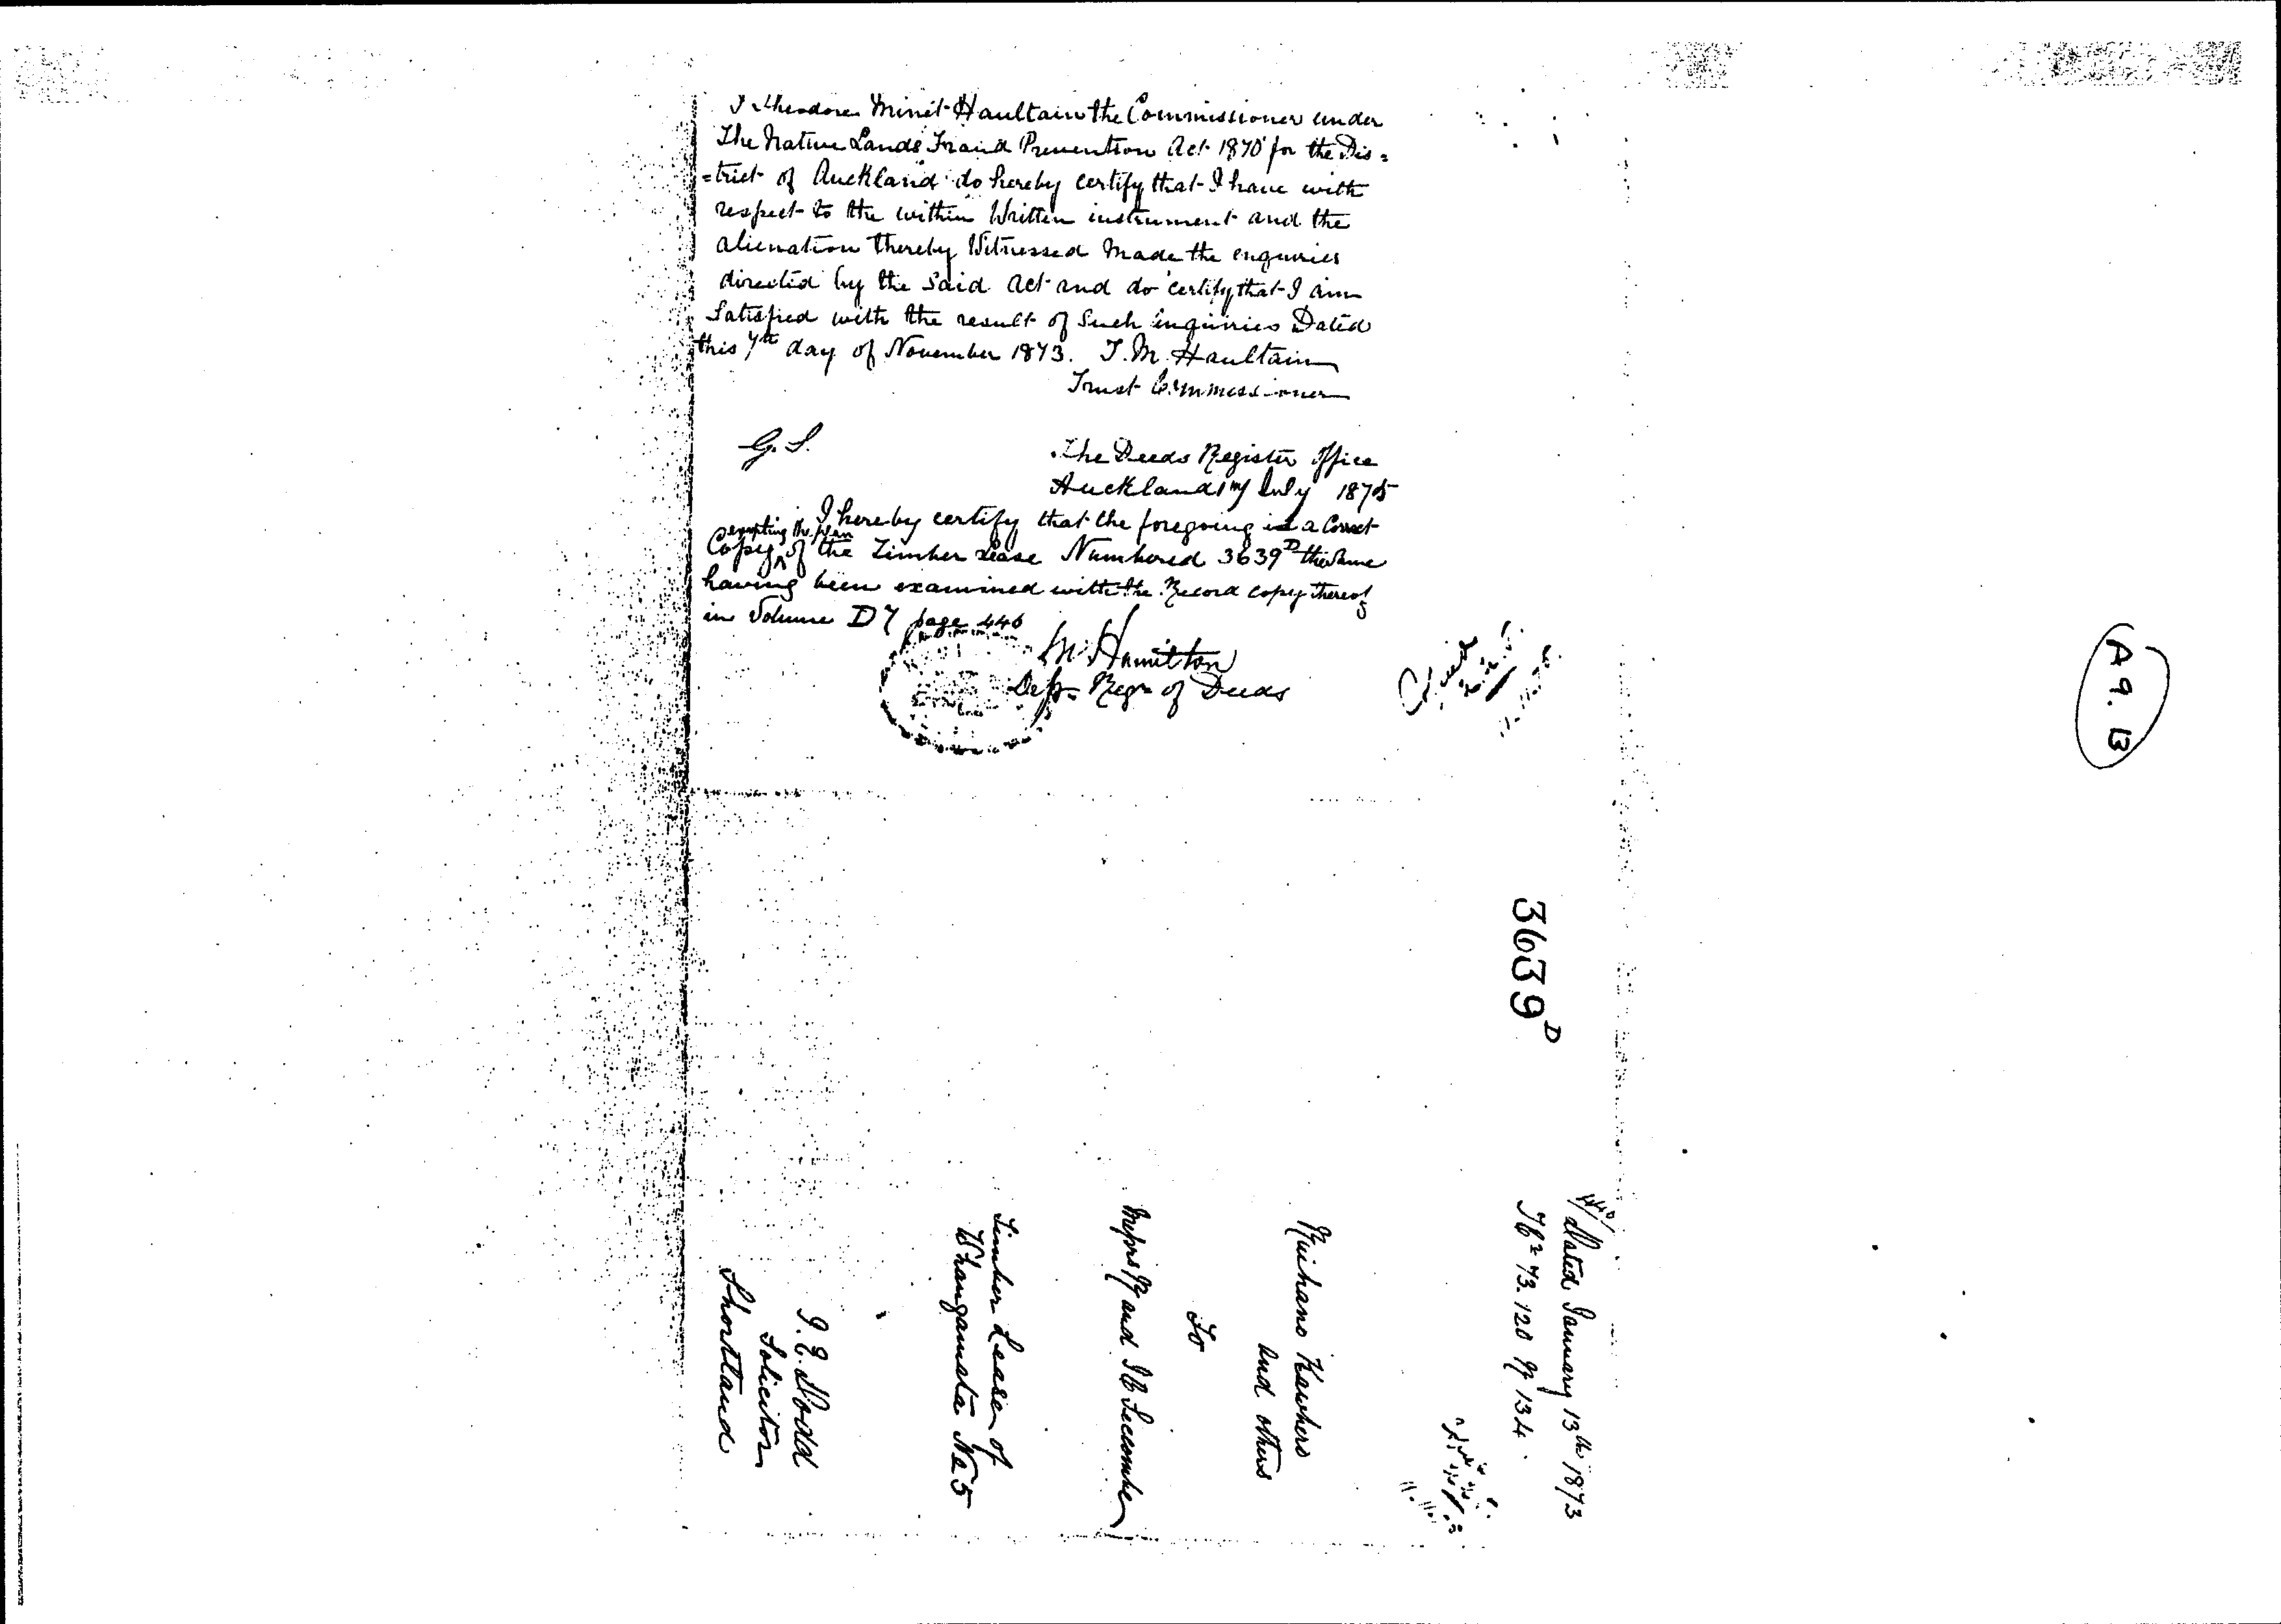 I Theodore Minit Haultain the Commissioner under
The Native Lands Fraud Prevention Act 1870 for the Dis=
=trict of Auckland do hereby certify that I have with
respect to the within Written instrument and the
alienation thereby Witnessed Made the enquiries
directed by the said Act and do certify that I am
Satisfied with the result of Such inquiries Dated
this 7th day of November 1873. T. M. Haultain
Trust Commissioner
G. S.
The Deeds Register Office
Auckland July 1875
I hereby certify that the foregoing is a Correct
excepting the plan
Copy of the Timber Lease Numbered 3639D the same
having been examined with the Record copy thereof
in Volume D7 page 446
Hamilton
Dep. Regr of Deeds
A 9. B
3639D
Dated January 13th 1873
73. 120 134.
and others
To
Messrs and Seccombe
Timber Lease of
Whangamata No 5
Dodd
Solicitor
Shortland